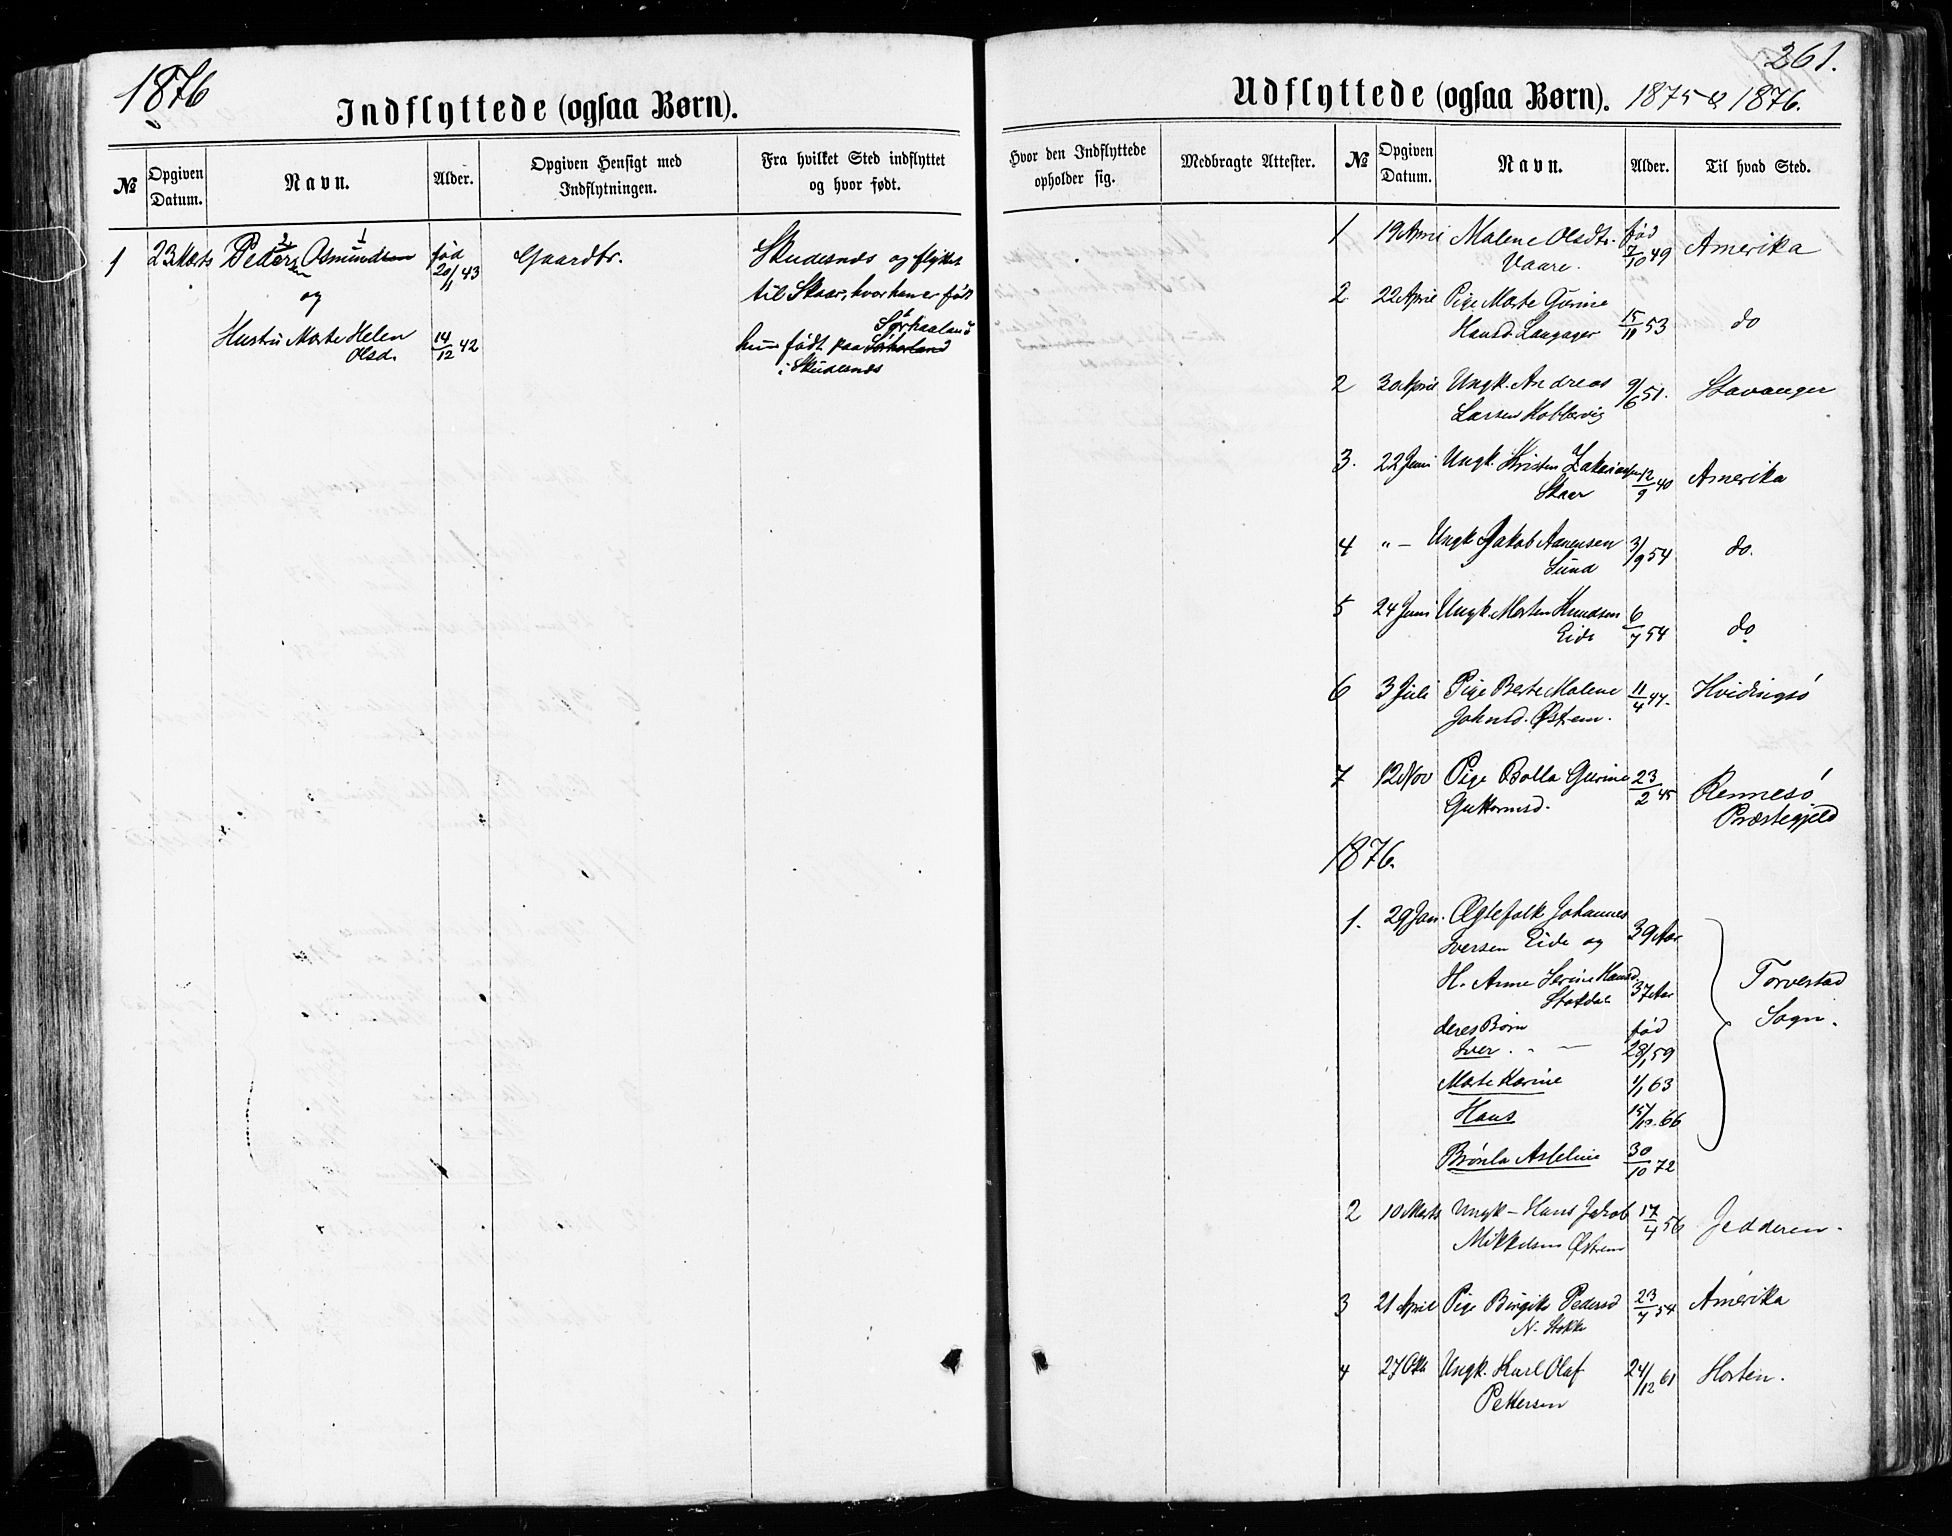 1876
Indflyttede (ogsaa Børn).
№
Opgiven Datum.
Navn.
Alder.
Opgiven Hensigt med Indflytningen.
Fra hvilket Sted indflyttet og hvor født.
1 23 Marts Peder Asmundsen født 20/11 43 Gaardbr. Skudesnæs og flyttet
og til Skaar, hvor han er født
Hustru Marte Helen 14/12 42 hun født paa Sørhaaland
Olsd. i Skudesnæs
261.
Udflyttede (ogsaa Børn). 1875 & 1876.
Hvor den Indflyttede opholder sig.
Medbragte Attester.
№
Opgiven Datum.
Navn.
Alder.
Til hvad Sted.
1 19 April Malene Olsdtr. fød 7/10 49 Amerika
Vaare.
2 22 April Pige Marte Gurine
Hansd. Langager 15/11 53 do
2 30 April Ungk. Andreas 9/6 51. Stavanger
Larsen Kobbervig
3. 22 Juni Ungk. Kristen Zakariassen 12/9 40 Amerika
Skaar
4 " — Ungk Jakob Aanensen 3/9 54 do.
Sund
5 24 Juni Ungk. Morten Knudsen 6/7 54 do
Eide
6 3 Juli Pige Berte Malene 11/4 47. Hvidingsö
Johnsd. Østrem.
7 12 Nov Pige Bolla Gurine 23/2 45 Rennesö
Guttormsd. Præstegjeld
1876.
1. 29 Jan. Ægtefolk Johannes
Iversen Eide og 39 Aar
H. Anne Serine Hansd.
Stokdal 37 Aar Torvestad
deres Børn fød Sogn.
Iver. " — 28/1 59
Marte Karine 1/1 63
Hans 15/10 66
Brønla Asleline 30/10 72
2 10 Marts Ungk — Hans Jakob 17/4 56 Jedderen.
Mikkelsen Østrem
3 21 April Pige Birgite Pedersd 23/7 54 Amerika
N. Stokke
4 27 Okt Ungk. Karl Olaf 24/12 61 Horten.
Pettersen